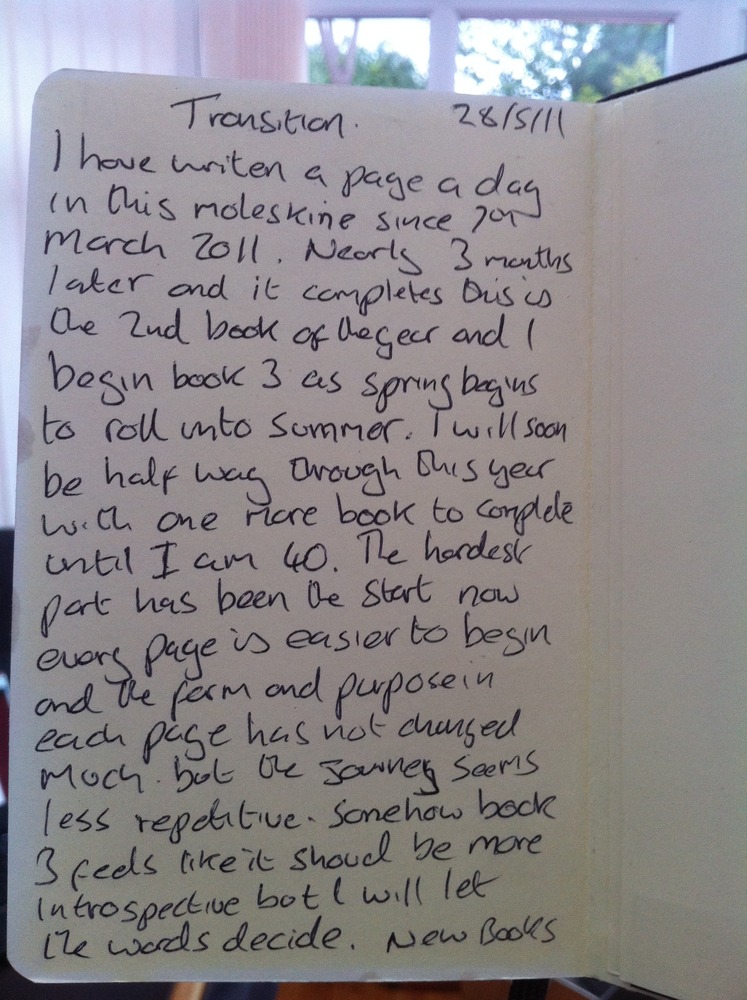 Transition. 28/5/11
I have writen a page a day
in this moleskine since
March 2011. Nearly 3 months
later and it completes this is
the 2nd book of the year and I
begin book 3 as spring begins
to roll into summer. I will soon
be half way through this year
with one more book to complete
until I am 40. The hardest
part has been the start now
every page is easier to begin
and the form and purpose in
each page has not changed
much. but the journey seems
less repetitive. Somehow book
3 feels like it shoud be more
introspective but I will let
the words decide. New Books